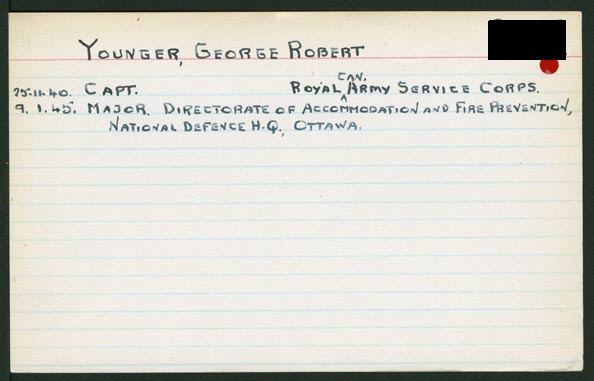 YOUNGER, GEORGE ROBERT
25.11.40. CAPT. ROYAL CAN. ARMY SERVICE CORPS.
9.1.45. MAJOR. DIRECTORATE OF ACCOMMODATION AND FIRE PREVENTION,
NATIONAL DEFENCE H.Q., OTTAWA.